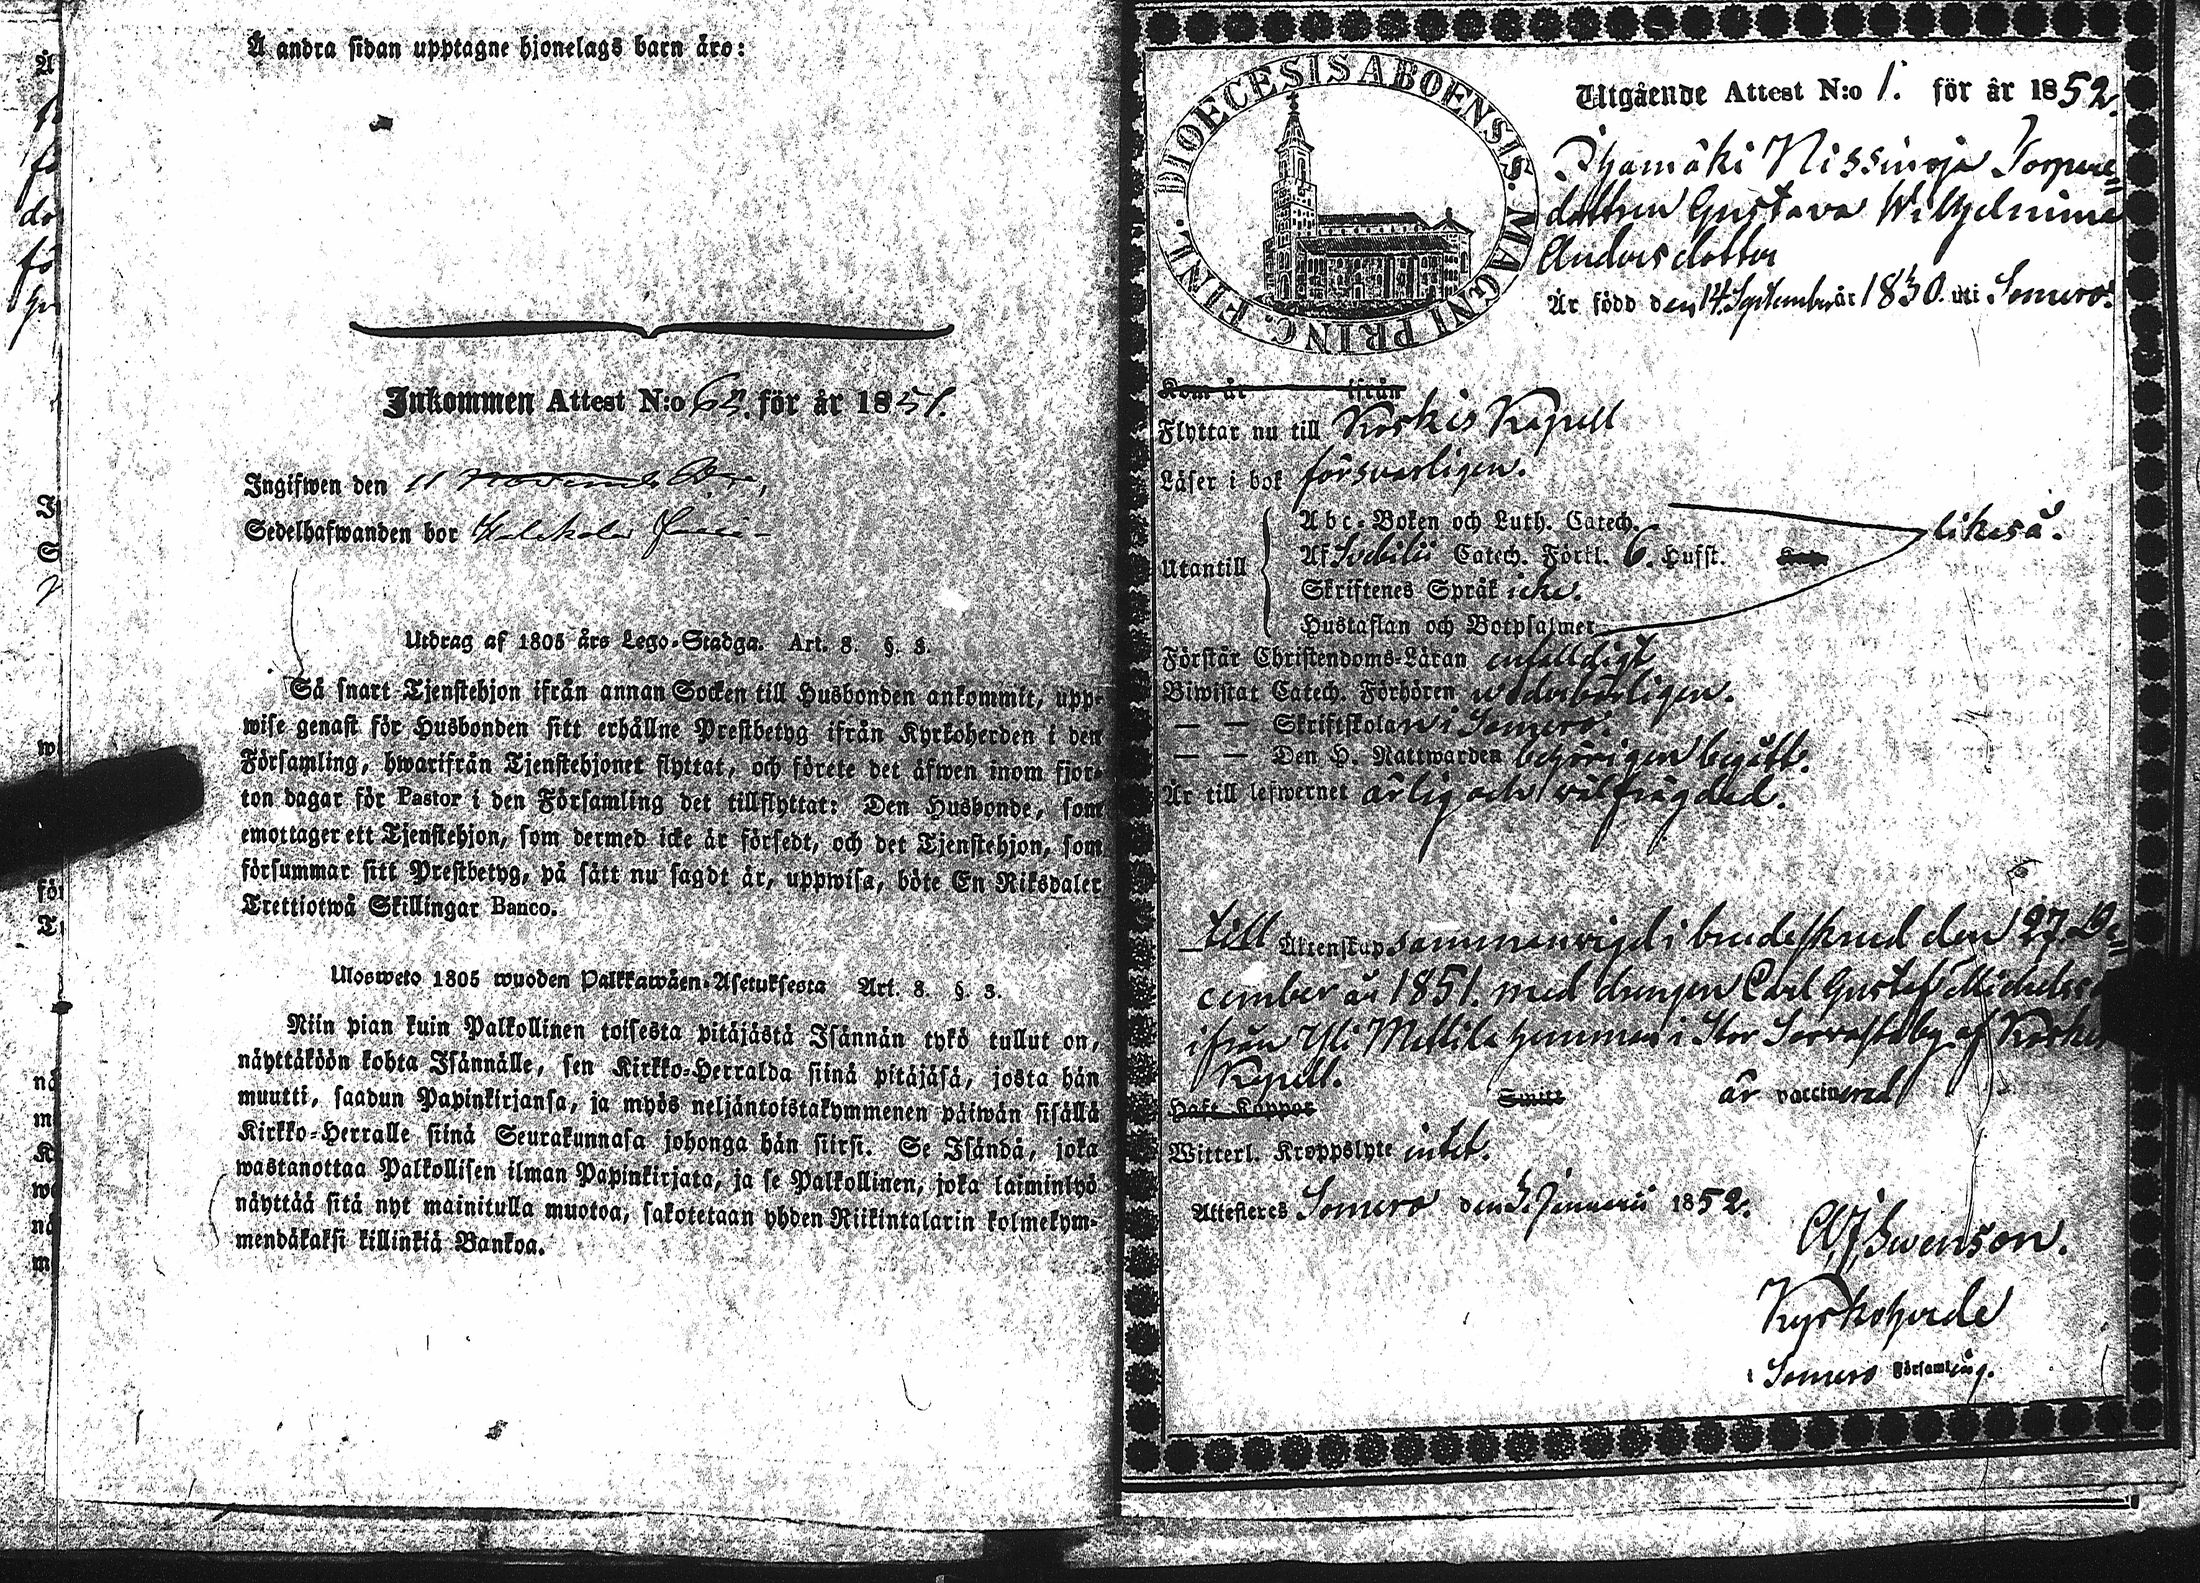 Å andra sidan upptagne hjonelags barn äro:
Inkommen Attest N:o 65. för år 1851.
Ingifwen den 11
Sedelhafwanden bor
Utdrag af 1805 års Lego-Stadga. Art. 8. §. 3.
Så snart Tjenstehjon ifrån annan Socken till Husbonden ankommit, upp-
wise genast för Husbonden sitt erhållne Prestbetyg ifrån Kyrkoherden i den
Församling, hwarifrån Tjenstehjonet flyttat, och förete det äfwen inom fjor-
ton dagar för Pastor i den Församling det tillflyttat: Den Husbonde, som
emottager ett Tjenstehjon, som dermed icke är försedt, och det Tjenstehjon, som
försummar sitt Prestbetyg, på sätt nu sagdt är, uppwisa, böte En Riksdaler
Trettiotwå Skillingar Banco.
Ulosweto 1805 wuoden Palkkawäen-Asetuksesta Art. 8. §. 3.
Niin pian kuin Palkollinen toisesta pitäjästä Isännän tykö tullut on,
näyttäköön kohta Isännälle, sen Kirkko-Herralda siinä pitäjäsä, josta hän
muutti, saadun Papinkirjansa, ja myös neljäntoistakymmenen päiwän sisällä
Kirkko-Herralle siinä Seurakunnasa johonga hän siirsi. Se Isändä, joka
wastanottaa Palkollisen ilman Papinkirjata, ja se Palkollinen, joka laiminlyö
näyttää sitä nyt mainitulla muotoa, sakotetaan yhden Riikintalarin kolmekym-
mendäkaksi killinkiä Bankoa.
DIOECESIS ABOENSIS. MAGNI PRINC. FINL.
Utgående Attest N:o 1. för år 1852.
Ihamäki Nissinoja Torpare=
dottren Gustava Wilhelmina
Andersdotter
Är född den 14. September år 1830. uti Somero.
Kom år ifrån
Flyttar nu till Koskis Kapell
Läser i bok försvarligen.
Abc-Boken och Luth. Catech.
Utantill Af Svebilii Catech. Förkl. 6. Hufst. likaså.
Skriftenes Språk icke.
Hustaflan och Botpsalmer
Förstår Christendoms-Läran enfalldigt
Biwistat Catech. Förhören wederbörligen.
— — Skriftskolan i Somero.
— — Den H. Nattwarden behörigen begått.
Är till lefwernet ärlig och wälfrägdad.
till Äktenskap sammanvigd i brudeskrud den 27. De=
cember år 1851. med drengen Carl Gustaf Michelsson
ifrån Yli Mattila hemman i Stor Sorvasto by af Koskis
Kapell.
Haft Koppor Smitt är vaccinerad
Witterl. Kroppslyte intet.
Attesteres Somero den 3. Januarii 1852.
A J Swenson.
Kyrkoherde
i Somero Församling.